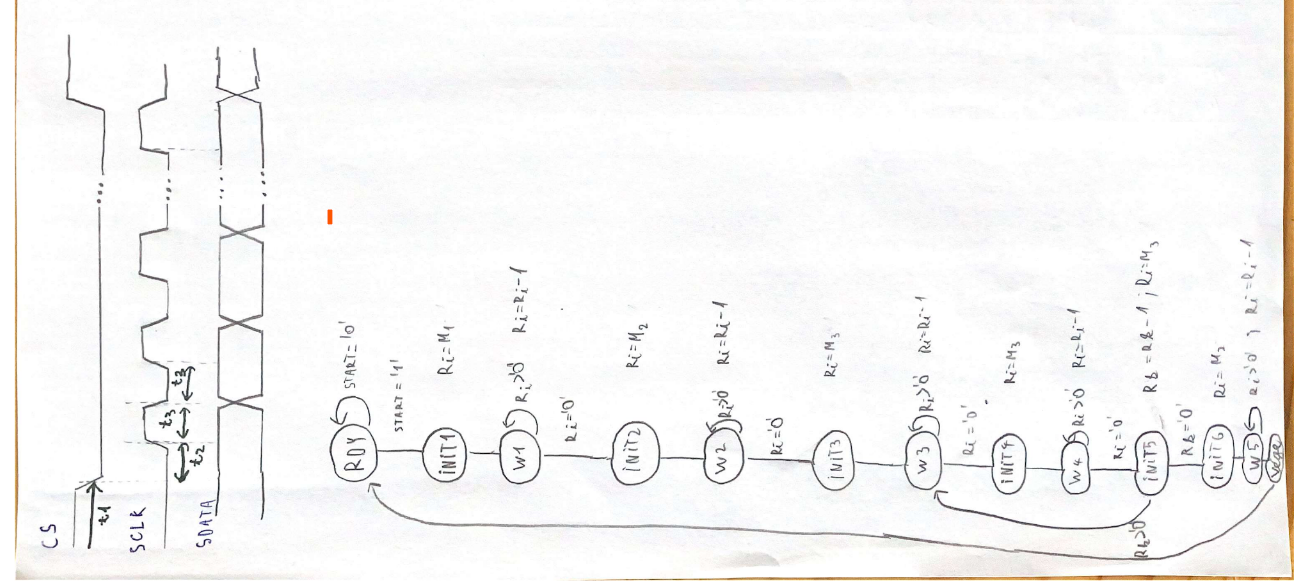 CS
t1
SCLK
t2
t3
t3
SDATA
...
...
...
RDY
START='0'
START='1'
INIT1
Ri=M1
W1
Ri>'0'
Ri=Ri-1
Ri='0'
INIT2
Ri=M2
W2
Ri>'0'
Ri=Ri-1
Ri='0'
INIT3
Ri=M3
W3
Ri>'0'
Ri=Ri-1
Ri='0'
INIT4
Ri=M3
W4
Ri>'0'
Ri=Ri-1
Ri='0'
INIT5
Rb=Rb-1; Ri=M3
Rb>'0'
Rb='0'
INIT6
Ri=M3
W5
Ri>'0'; Ri=Ri-1